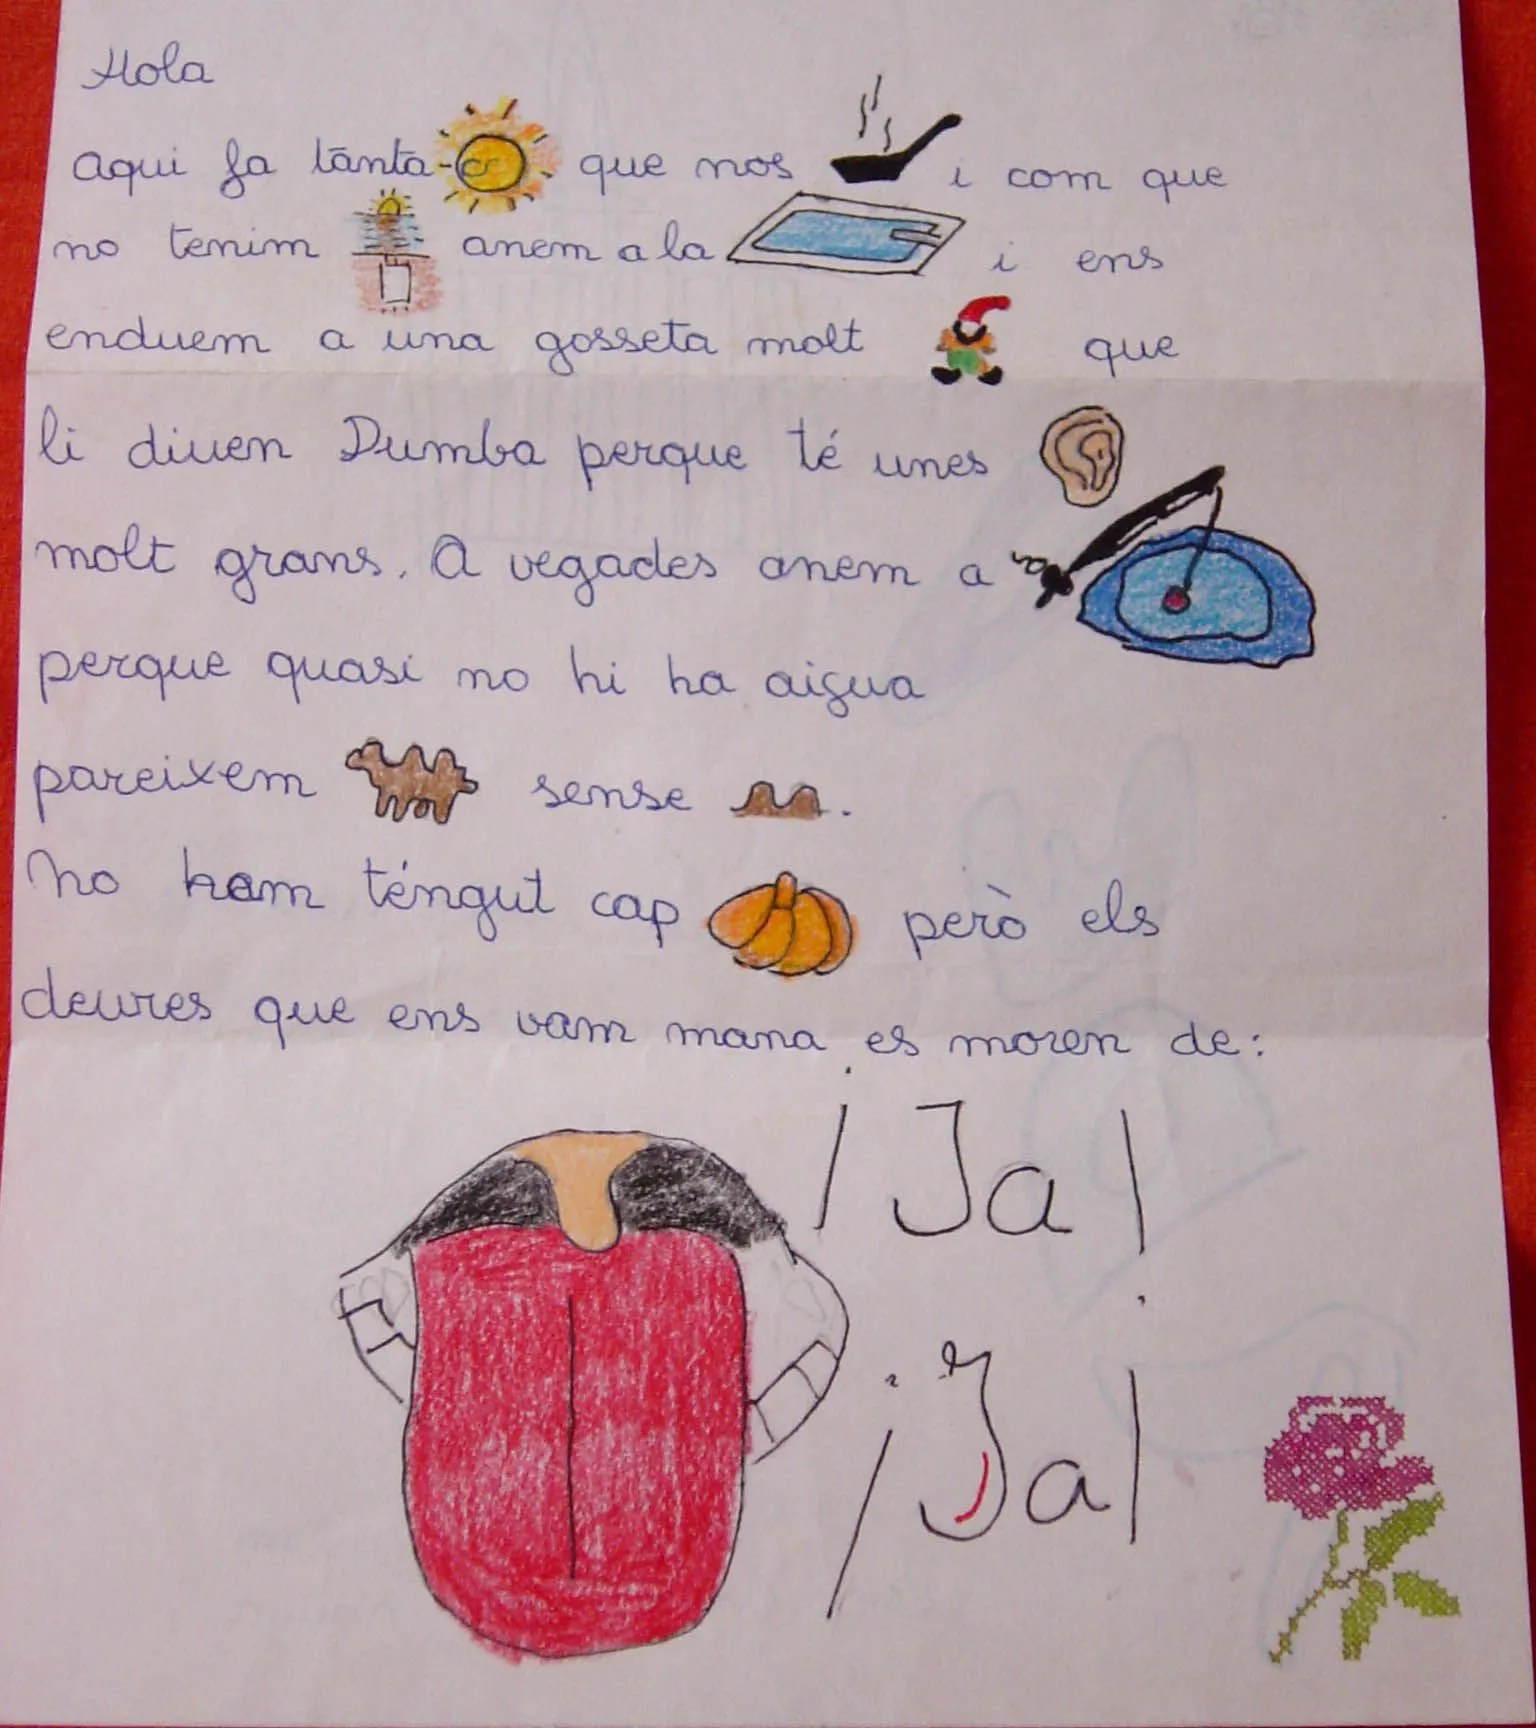 Hola
Aqui fa tānta- que nos i com que
no tenim anem a la i ens
enduem a una gosseta molt que
li diuen Dumba perque té unes
molt grans. A vegades anem a
perque quasi no hi ha aigua
pareixem sense .
No ham téngut cap però els
deures que ens vam mana es moren de:
¡Ja!
¡Ja!